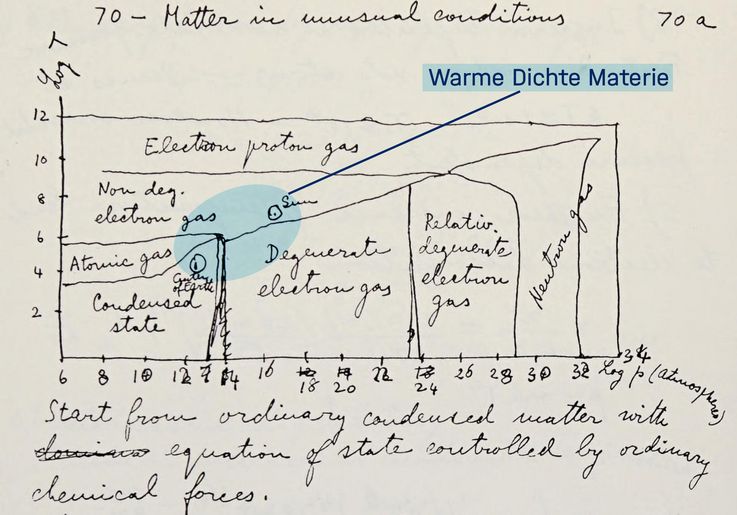 70 – Matter in unusual conditions 70 a
Log T
Warme Dichte Materie
12
Electron proton gas
10
Non deg.
electron gas
8
Sun
6
Atomic gas
Degenerate
electron gas
Relativ.
degenerate
electron
gas
Neutron gas
4
Center
of earth
Condensed
state
2
6 8 10 12 14 16 18 20 22 24 26 28 30 32 34
Log p (atmospheres)
Start from ordinary condensed matter with
equation of state controlled by ordinary
chemical forces.